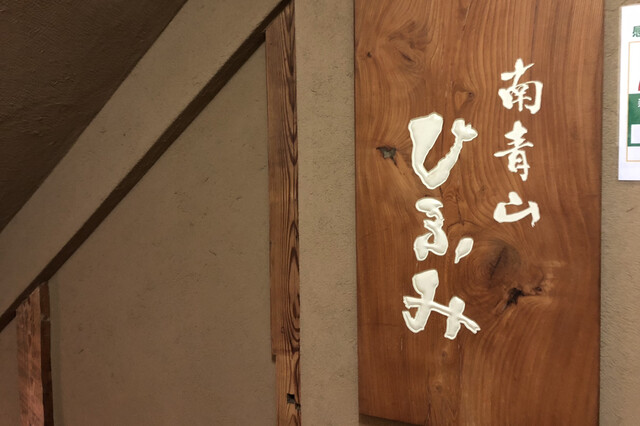 南青山
ひふみ